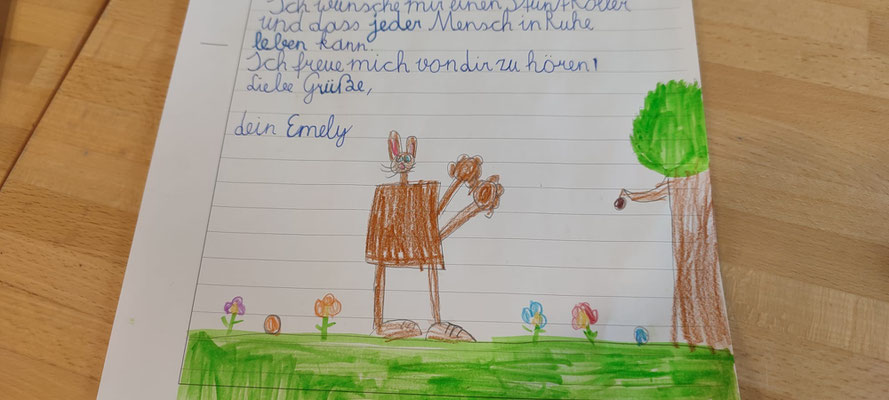 Ich wünsche mir einen Stuntroller
und dass jeder Mensch in Ruhe
leben kann.
Ich freue mich von dir zu hören!
Liebe Grüße,
dein Emely